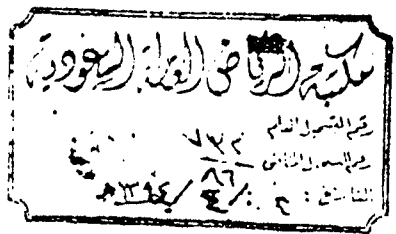 مكتبة الرياض العامة السعودية
رقم التسجيل العام
٧٣٢
رقم التسجيل الخاص
٨٦
التاريخ : / / ١٣٩٤هـ